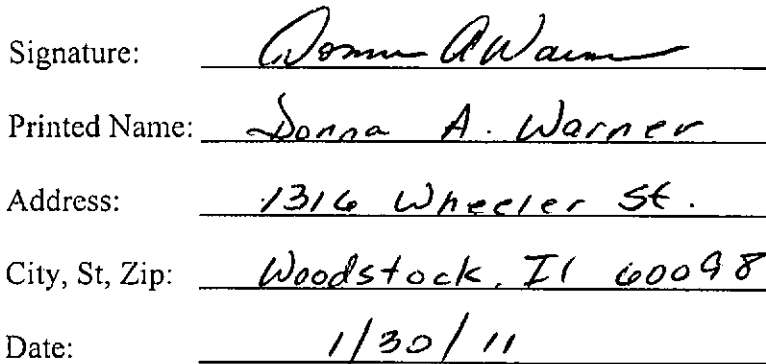 Signature: Donna A Warner
Printed Name: Donna A. Warner
Address: 1316 Wheeler St.
City, St, Zip: Woodstock, Il 60098
Date: 1/30/11